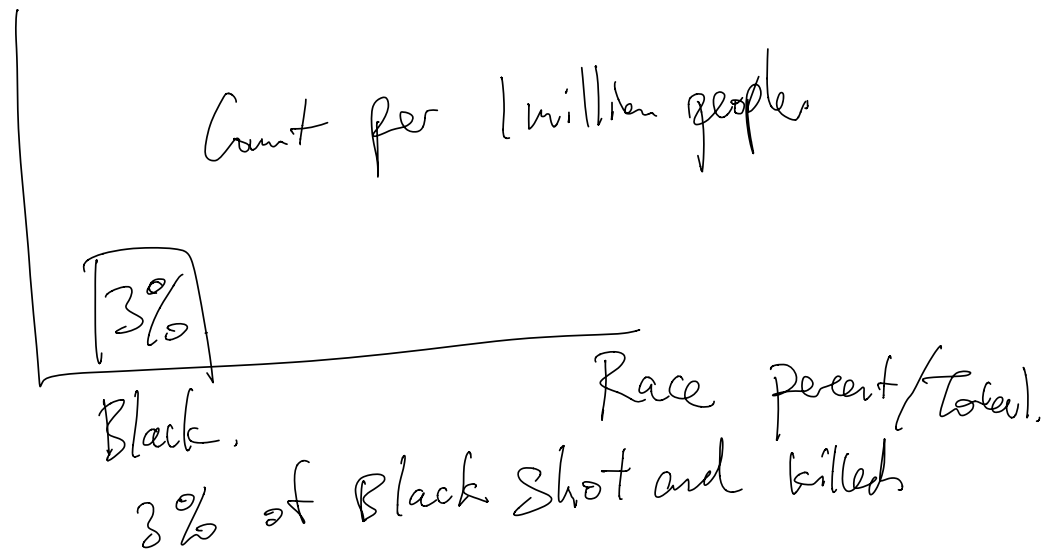 Count per 1 million people
3%
Black.
Race percent/Total.
3% of Black shot and killed